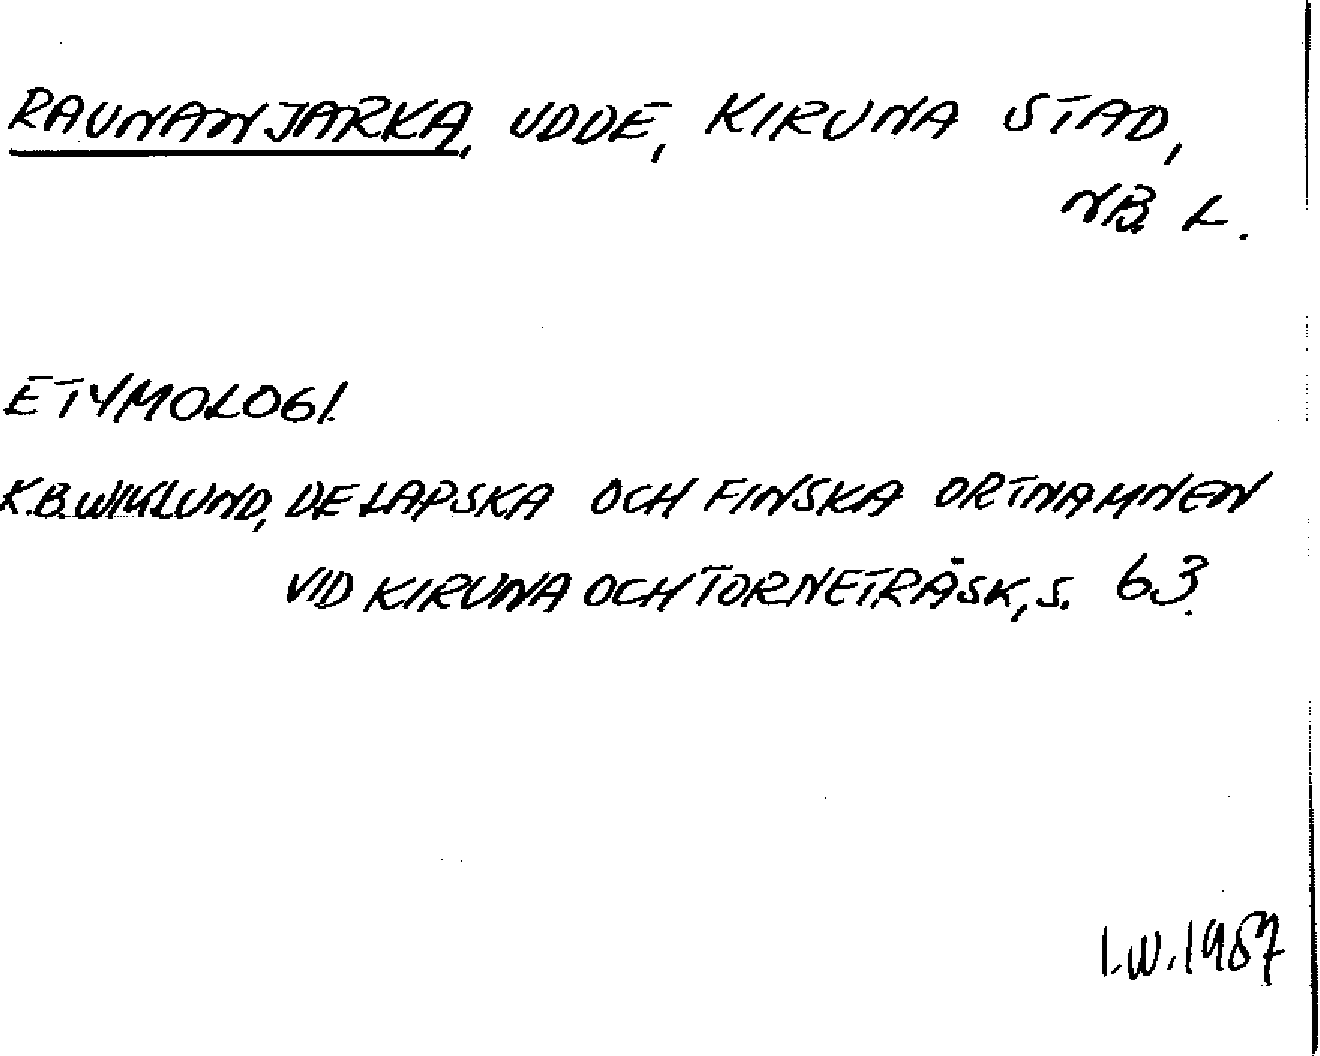 RAUNANJARKA, UDDE, KIRUNA STAD,
NB. L.
ETYMOLOGI.
K.B. WIKLUND, DE LAPSKA OCH FINSKA ORTNAMNEN
VID KIRUNA OCH TORNETRÄSK, S. 63.
I.W. 1987